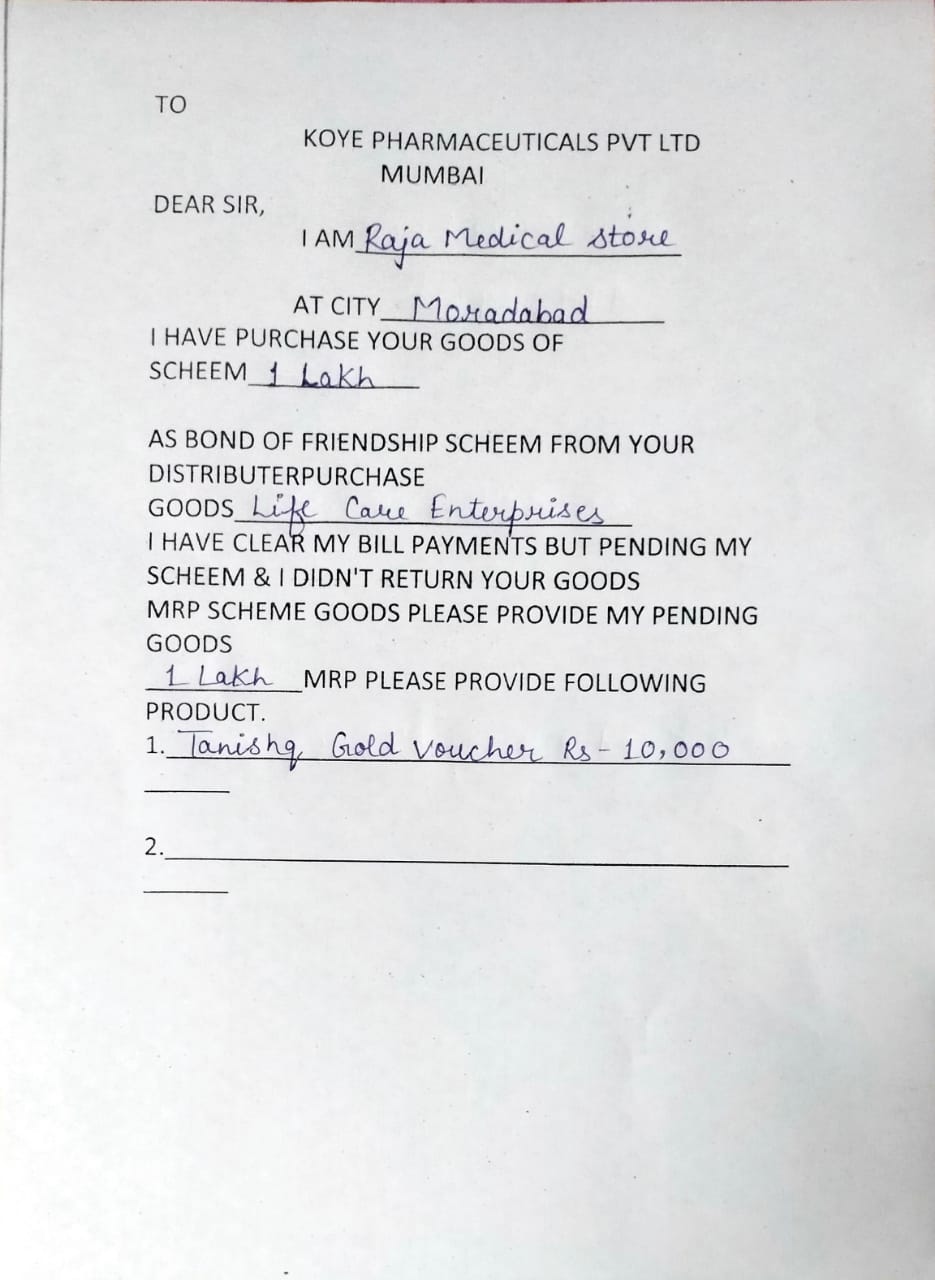 TO
KOYE PHARMACEUTICALS PVT LTD
MUMBAI
DEAR SIR,
I AM Raja Medical Store
AT CITY Moradabad
I HAVE PURCHASE YOUR GOODS OF
SCHEEM 1 Lakh
AS BOND OF FRIENDSHIP SCHEEM FROM YOUR
DISTRIBUTERPURCHASE
GOODS Life Care Enterprises
I HAVE CLEAR MY BILL PAYMENTS BUT PENDING MY
SCHEEM & I DIDN'T RETURN YOUR GOODS
MRP SCHEME GOODS PLEASE PROVIDE MY PENDING
GOODS
1 Lakh MRP PLEASE PROVIDE FOLLOWING
PRODUCT.
1. Tanishq Gold Voucher Rs - 10,000
2.